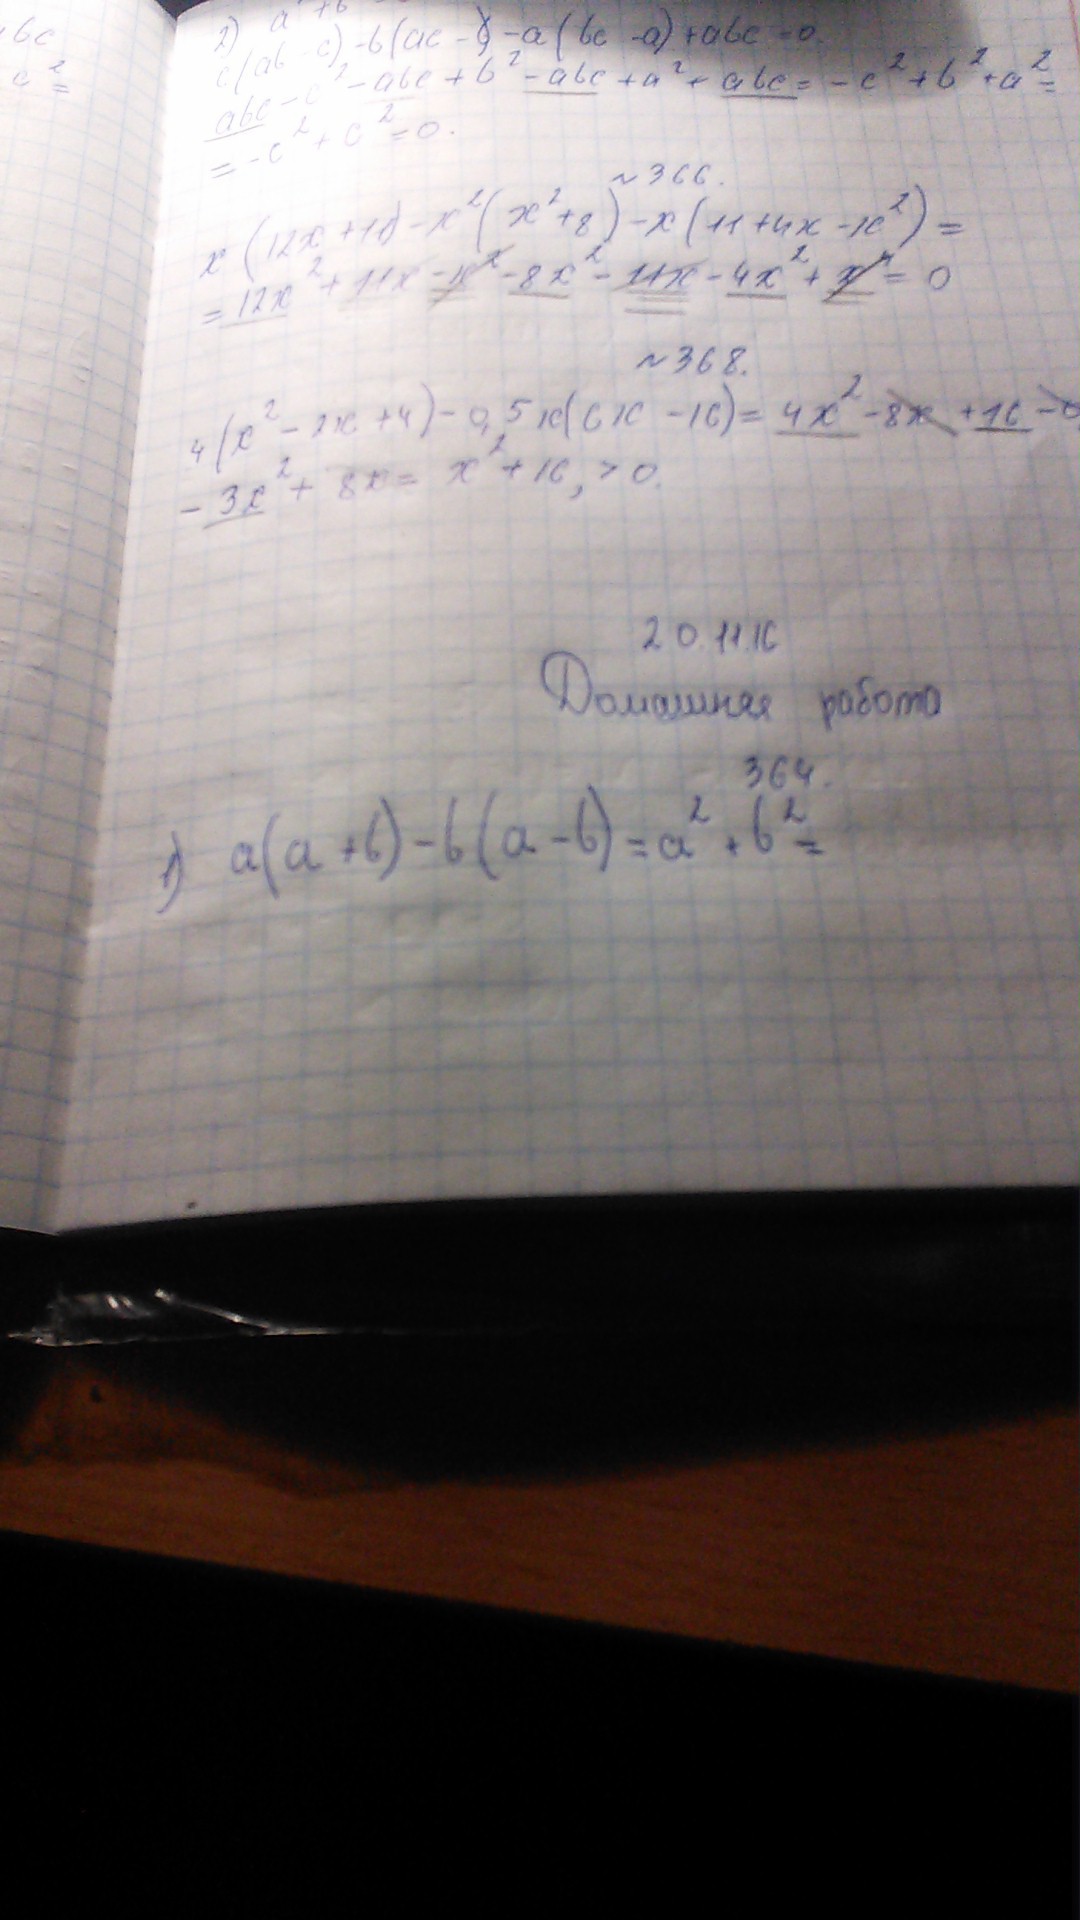 bc
c² =
2) a² + b
c(ab - c) - b(ac - b) - a(bc - a) + abc = 0.
abc - c² - abc + b² - abc + a² + abc = -c² + b² + a² =
= -c² + c² = 0.
~366.
x(12x + 11) - x²(x² + 8) - x(11 + 4x - x²) =
= 12x² + 11x - x² - 8x² - 11x - 4x² + x⁴ = 0
~368.
4(x² - 2x + 4) - 0,5x(6x - 16) = 4x² - 8x + 16 -
- 3x² + 8x = x² + 16, > 0.
20.11.16
Домашняя работа
364.
1) a(a + b) - b(a - b) = a² + b² =